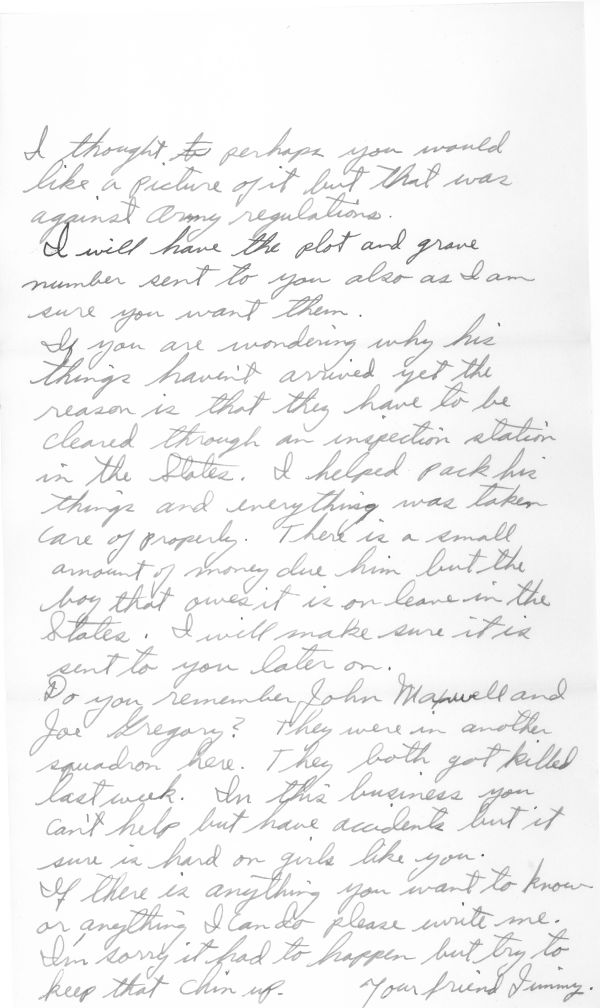 I thought to perhaps you would
like a picture of it but that was
against Army regulations.
I will have the plot and grave
number sent to you also as I am
sure you want them.
If you are wondering why his
things haven't arrived yet the
reason is that they have to be
cleared through an inspection station
in the States. I helped pack his
things and everything was taken
care of properly. There is a small
amount of money due him but the
boy that owes it is on leave in the
States. I will make sure it is
sent to you later on.
Do you remember John Maxwell and
Joe Gregory? They were in another
squadron here. They both got killed
last week. In this business you
can't help but have accidents but it
sure is hard on girls like you.
If there is anything you want to know
or anything I can do please write me.
I'm sorry it had to happen but try to
keep that chin up. Your friend Jimmy.